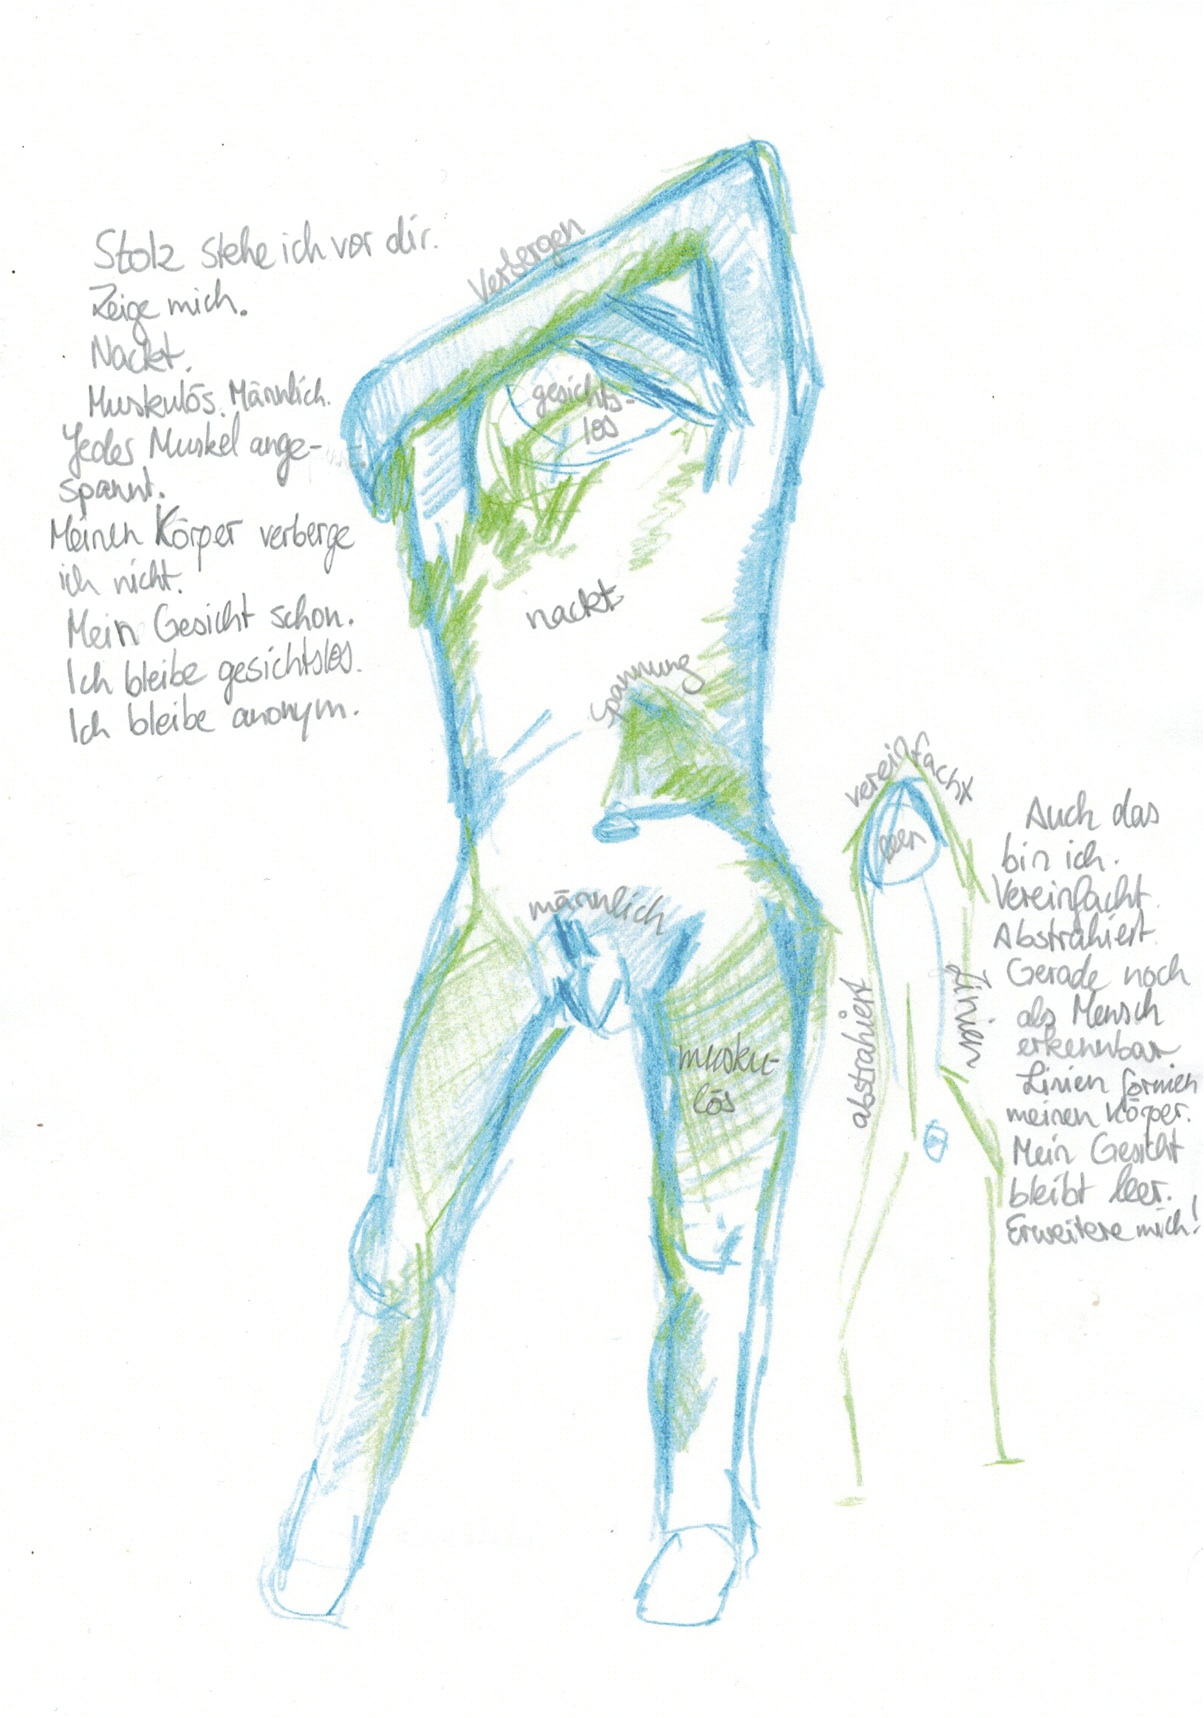 Stolz stehe ich vor dir.
Zeige mich.
Nackt.
Muskulös. Männlich.
Jedes Muskel ange-
spannt.
Meinen Körper verberge
ich nicht.
Mein Gesicht schon.
Ich bleibe gesichtslos.
Ich bleibe anonym.
Verbergen
gesichts-
los
nackt
Spannung
männlich
musku-
lös
vereinfacht
leer
abstrahiert
Linien
Auch das
bin ich.
Vereinfacht.
Abstrahiert.
Gerade noch
als Mensch
erkennbar
Linien formen
meinen Körper.
Mein Gesicht
bleibt leer.
Erweitere mich!